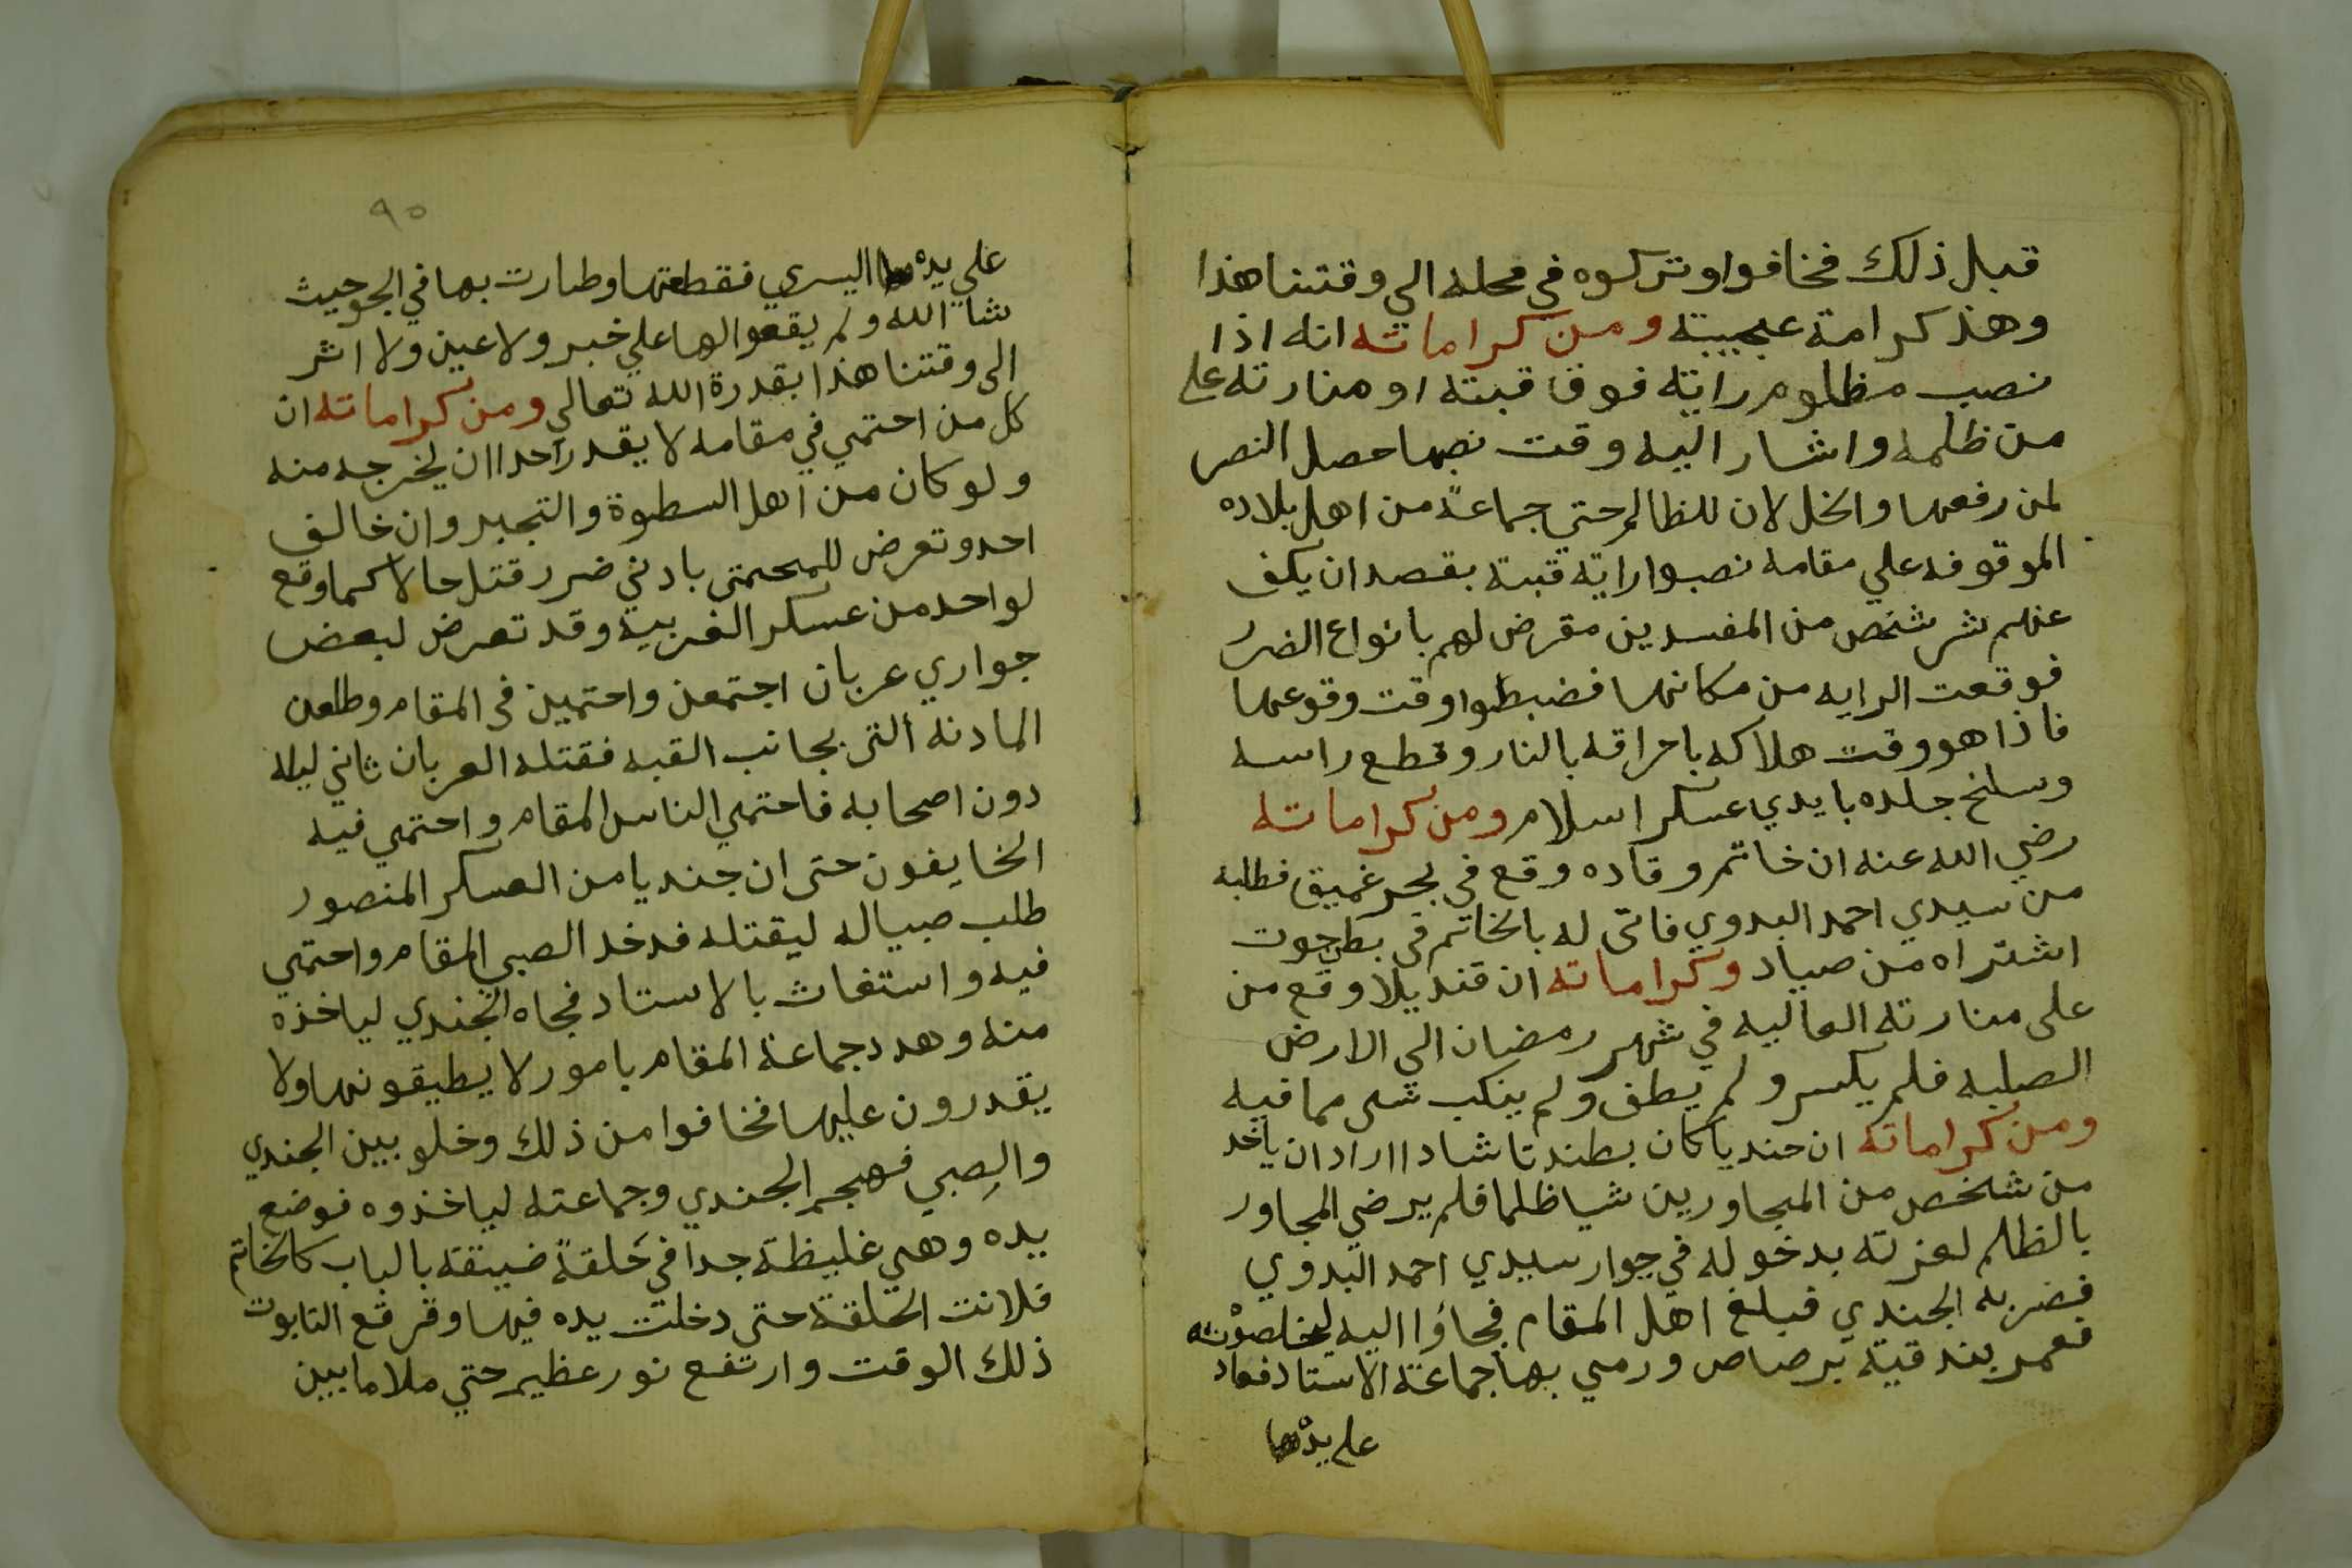 قبل ذلك فخافوا وتركوه في محله الي وقتنا هذا
وهذ كرامة عجيبة ومن كراماته انه اذا
نصب مظلوم راية فوق قبته او منارته على
من ظلمه واشار اليه وقت نصبها حصل النصر
لمن رفعها والخذلان للظالم حتي جماعة من اهل بلاده
الموقوفه علي مقامه نصبوا راية قبته بقصد ان يكف
عنهم شر شخص من المفسدين مقرض لهم بانواع الضرر
فوقعت الرايه من مكانها فضبطوا وقت وقوعها
فاذا هو وقت هلاكه باحراقه بالنار وقطع راسه
وسلخ جلده بايدي عسكر اسلام ومن كراماته
رضي الله عنه ان خاتم وقاده وقع في بحر غميق فطلبه
من سيدي احمد البدوي فاتى له بالخاتم في بطن حوت
اشتراه من صياد وكراماته ان قنديلا وقع من
على منارته العاليه في شهر رمضان الي الارض
الصلبه فلم يكسر ولم يطف ولم ينكب شي مما فيه
ومن كراماته ان جنديا كان بطندتا شادا اراد ان ياخد
من شخص من المجاورين شيا ظلما فلم يرضي المجاور
بالظلم لعزته بدخوله في جوار سيدي احمد البدوي
فضربه الجندي فبلغ اهل المقام فجاؤا اليه ليخلصوته
فعمر بندقية برصاص ورمي بها جماعة الاستاد فعاد
على يده
٩٥
علي يده اليسري فقطعتها وطارت بها في الجو حيث
شا الله ولم يقعوا لها علي خبر ولا عين ولا اثر
الى وقتنا هذا بقدرة الله تعالي ومن كراماته ان
كل من احتمي في مقامه لا يقدر احدا ان يخرجه منه
ولو كان من اهل السطوة والتجبر وان خالف
احد وتعرض للمحتمى بادني ضرر قتل حالا كما وقع
لواحد من عسكر الغربية وقد تعرض لبعض
جواري عربان اجتمعن واحتمين في المقام وطلعن
المادنه التى بجانب القبه فقتله العربان ثاني ليله
دون اصحابه فاحتمي الناس المقام واحتمي فيه
الخايفون حتى ان جنديا من العسكر المنصور
طلب صبياله ليقتله فدخد الصبي المقام واحتمي
فيه واستغاث بالاستاد فجاه الجندي لياخذه
منه وهدد جماعة المقام بامور لا يطيقونها ولا
يقدرون عليها فخافوا من ذلك وخلو بين الجندي
والصبي فهجم الجندي وجماعته لياخذوه فوضع
يده وهي غليظة جدا في حلقة ضيقة بالباب كالخاتم
فلانت الحلقة حتى دخلت يده فيها وقرقع التابوت
ذلك الوقت وارتفع نور عظيم حتي ملا ما بين